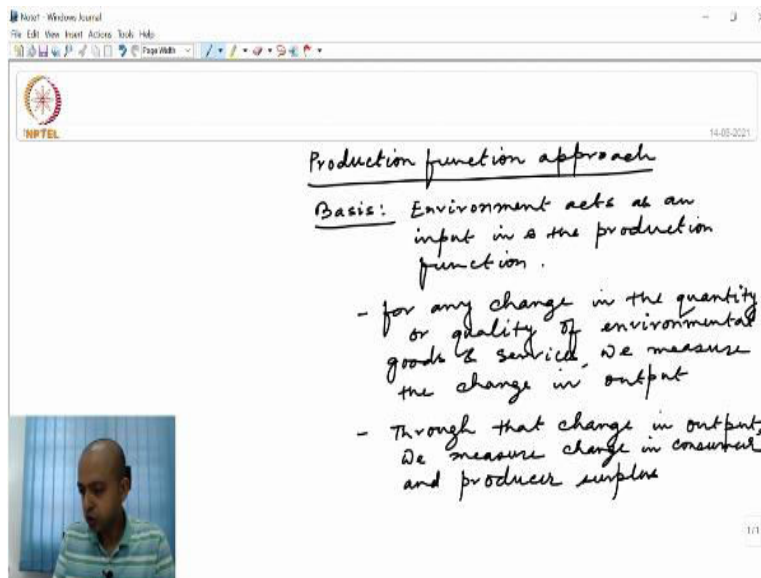 Note1 - Windows Journal
File Edit View Insert Actions Tools Help
Page Width
NPTEL
14-08-2021
Production function approach
Basis: Environment acts as an
input in the production
function.
- for any change in the quantity
or quality of environmental
goods & services, we measure
the change in output
- Through that change in output,
we measure change in consumer
and producer surplus
1/1